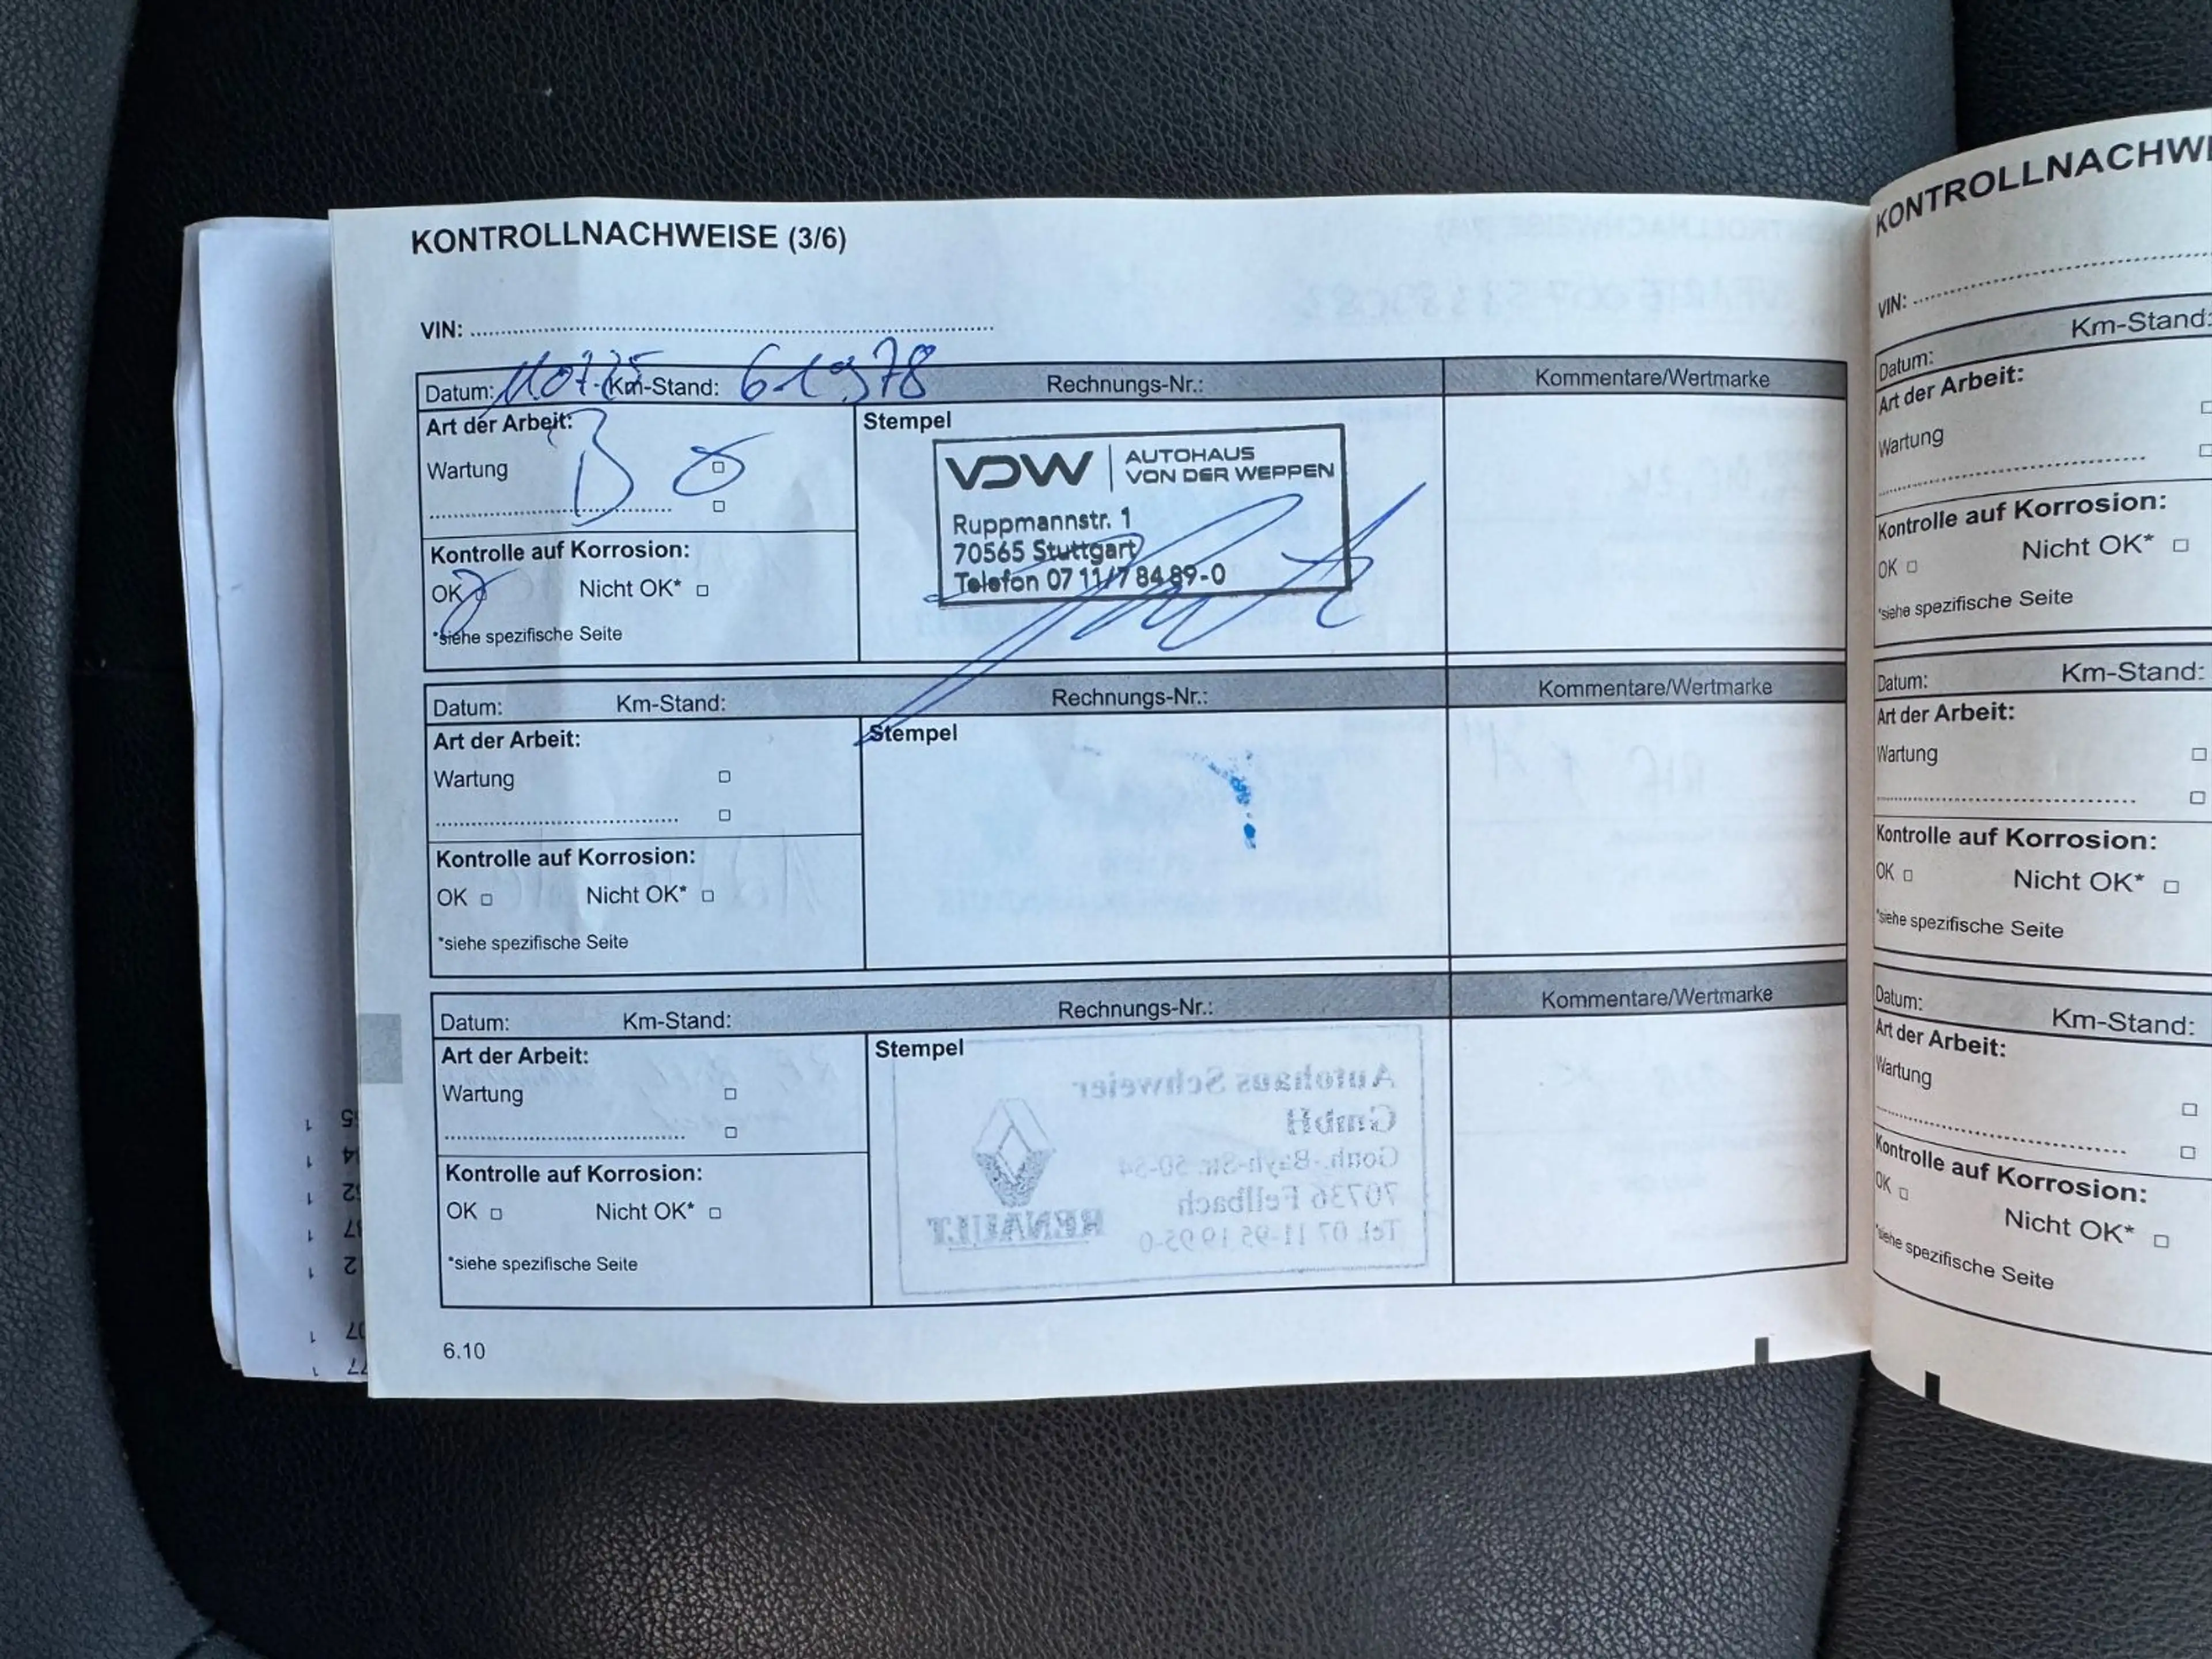 KONTROLLNACHWEISE (3/6)
VIN:
Datum: Km-Stand: 61978 Rechnungs-Nr.: Kommentare/Wertmarke
Art der Arbeit: B
Wartung
Kontrolle auf Korrosion:
OK Nicht OK*
*siehe spezifische Seite
Stempel
VDW AUTOHAUS
VON DER WEPPEN
Ruppmannstr. 1
70565 Stuttgart
Telefon 07 11/7 84 89-0
Datum: Km-Stand: Rechnungs-Nr.: Kommentare/Wertmarke
Art der Arbeit:
Wartung
Kontrolle auf Korrosion:
OK Nicht OK*
*siehe spezifische Seite
Stempel
Datum: Km-Stand: Rechnungs-Nr.: Kommentare/Wertmarke
Art der Arbeit:
Wartung
Kontrolle auf Korrosion:
OK Nicht OK*
*siehe spezifische Seite
Stempel
Autohaus Schweier
GmbH
70736 Fellbach
Tel. 07 11-95 19 95-0
RENAULT
6.10
KONTROLLNACHWEI
VIN:
Datum: Km-Stand:
Art der Arbeit:
Wartung
Kontrolle auf Korrosion:
OK Nicht OK*
*siehe spezifische Seite
Datum: Km-Stand:
Art der Arbeit:
Wartung
Kontrolle auf Korrosion:
OK Nicht OK*
*siehe spezifische Seite
Datum: Km-Stand:
Art der Arbeit:
Wartung
Kontrolle auf Korrosion:
OK Nicht OK*
*siehe spezifische Seite